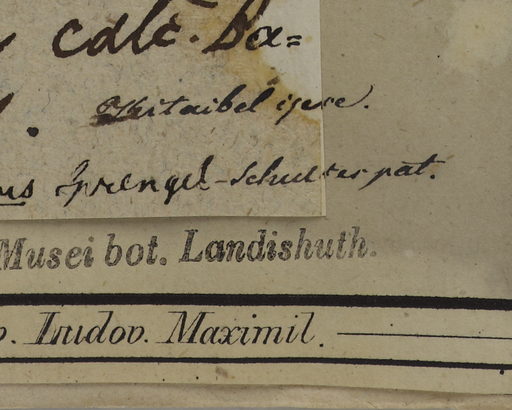 calc. Ba=
Kitaibel
us Sprengel - Schultes pat.
Musei bot. Landishuth.
o. Ludov. Maximil.